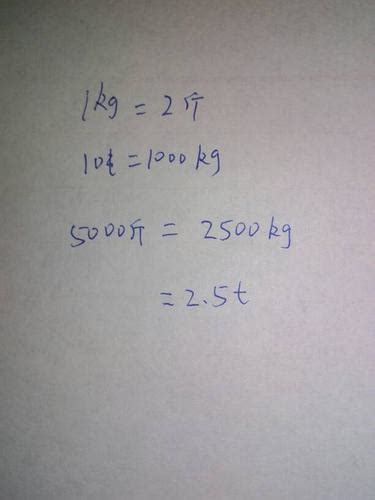 1kg = 2斤
10t = 1000kg
5000斤 = 2500kg
= 2.5t